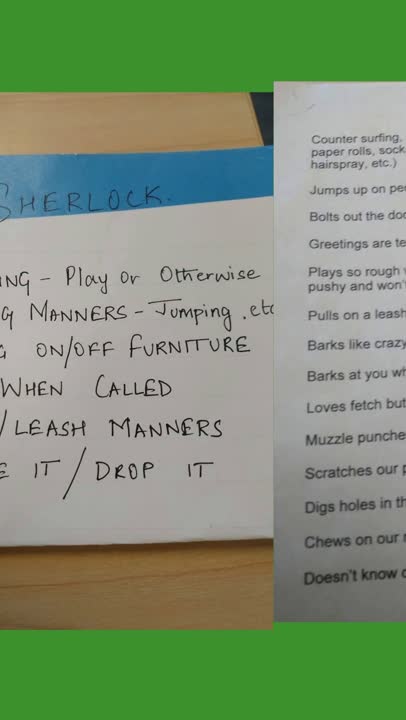 SHERLOCK.
ING - Play or Otherwise
G MANNERS - Jumping. etc
G ON/OFF FURNITURE
WHEN CALLED
/LEASH MANNERS
E IT / DROP IT
Counter surfing,
paper rolls, sock
hairspray, etc.)
Jumps up on pe
Bolts out the doo
Greetings are te
Plays so rough
pushy and won't
Pulls on a leash
Barks like crazy
Barks at you wh
Loves fetch but
Muzzle punche
Scratches our
Digs holes in th
Chews on our
Doesn't know